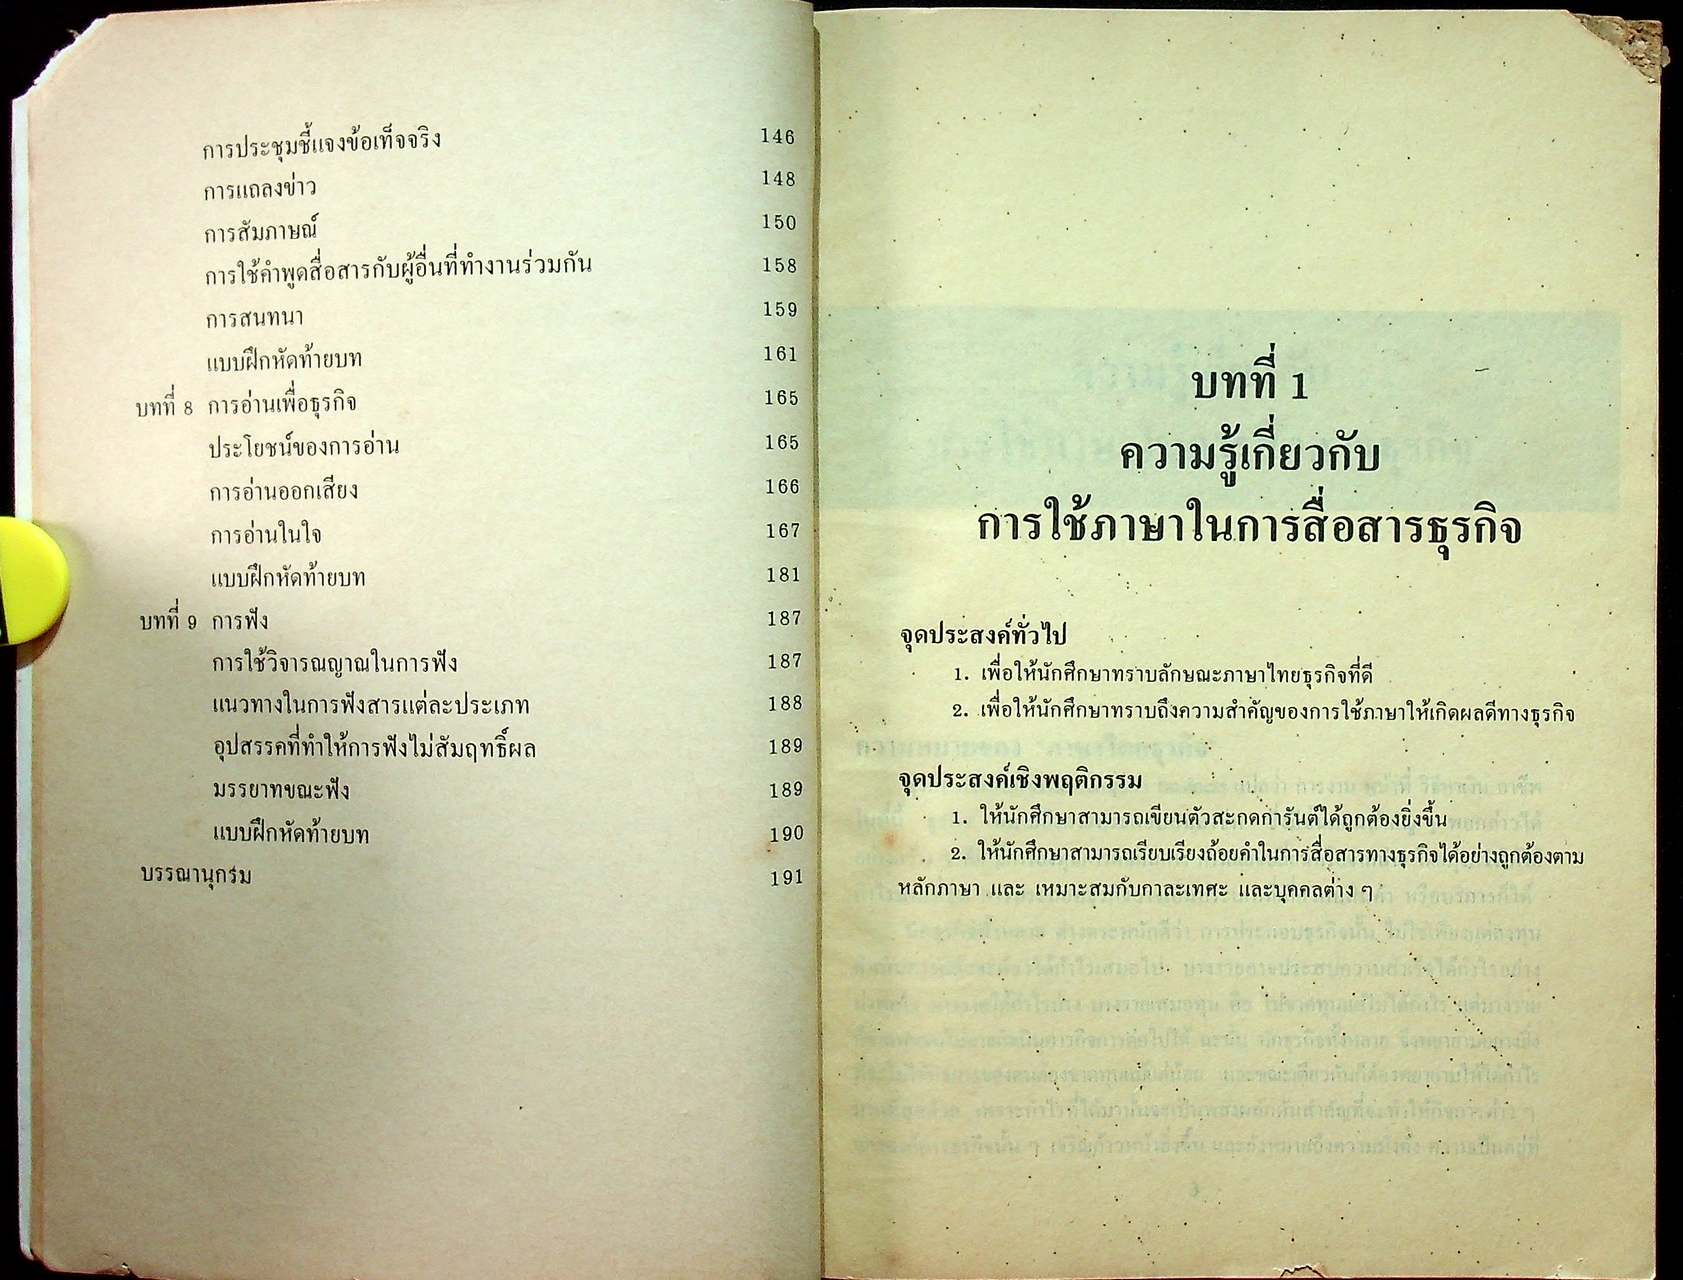 การประชุมชี้แจงข้อเท็จจริง 146
การแถลงข่าว 148
การสัมภาษณ์ 150
การใช้คำพูดสื่อสารกับผู้อื่นที่ทำงานร่วมกัน 158
การสนทนา 159
แบบฝึกหัดท้ายบท 161
บทที่ 8 การอ่านเพื่อธุรกิจ 165
ประโยชน์ของการอ่าน 165
การอ่านออกเสียง 166
การอ่านในใจ 167
แบบฝึกหัดท้ายบท 181
บทที่ 9 การฟัง 187
การใช้วิจารณญาณในการฟัง 187
แนวทางในการฟังสารแต่ละประเภท 188
อุปสรรคที่ทำให้การฟังไม่สัมฤทธิ์ผล 189
มรรยาทขณะฟัง 189
แบบฝึกหัดท้ายบท 190
บรรณานุกรม 191
บทที่ 1
ความรู้เกี่ยวกับ
การใช้ภาษาในการสื่อสารธุรกิจ
จุดประสงค์ทั่วไป
1. เพื่อให้นักศึกษาทราบลักษณะภาษาไทยธุรกิจที่ดี
2. เพื่อให้นักศึกษาทราบถึงความสำคัญของการใช้ภาษาให้เกิดผลดีทางธุรกิจ
จุดประสงค์เชิงพฤติกรรม
1. ให้นักศึกษาสามารถเขียนตัวสะกดการันต์ได้ถูกต้องยิ่งขึ้น
2. ให้นักศึกษาสามารถเรียบเรียงถ้อยคำในการสื่อสารทางธุรกิจได้อย่างถูกต้องตาม
หลักภาษา และ เหมาะสมกับกาละเทศะ และบุคคลต่าง ๆ